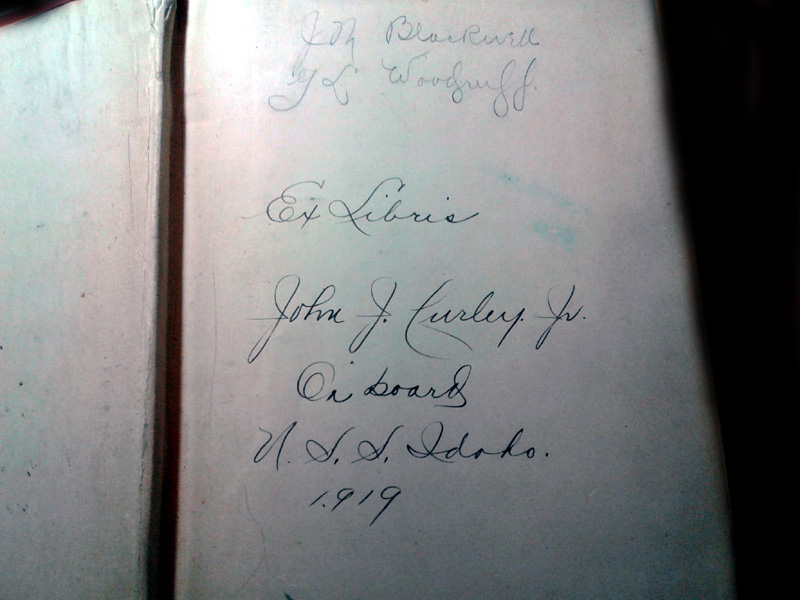 J M Blackwell
Y L Woodruff.
Ex Libris
John J. Curley. Jr.
On board
U. S. S. Idaho.
1919